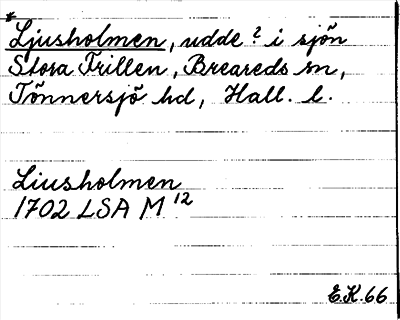 * Ljusholmen, udde? i sjön
Stora Frillen, Breareds sn,
Tönnersjö hd, Hall. l.
Liusholmen
1702 LSA M 12
E.K. 66